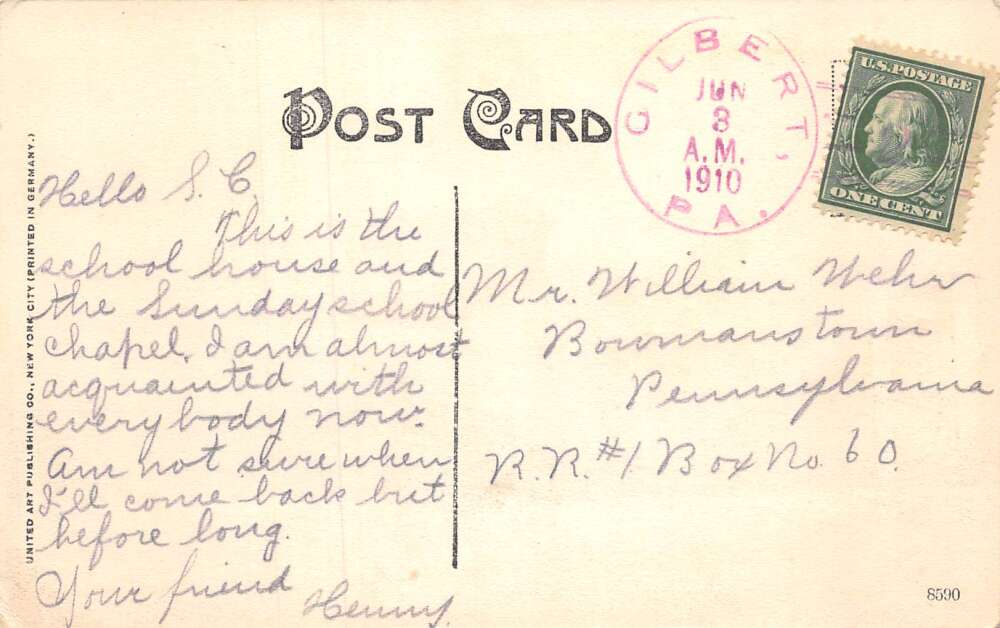 UNITED ART PUBLISHING CO., NEW YORK CITY (PRINTED IN GERMANY.)
POST CARD
GILBERT, PA.
JUN
3
A.M.
1910
U.S. POSTAGE
ONE CENT
Hello S. C.
This is the
school house and
the Sunday school
chapel. I am almost
acquainted with
everybody now.
Am not sure when
I'll come back but
before long.
Your friend
Henny.
Mr. William Wehr
Bowmanstown
Pennsylvania
R.R. #1 Box No. 60.
8590